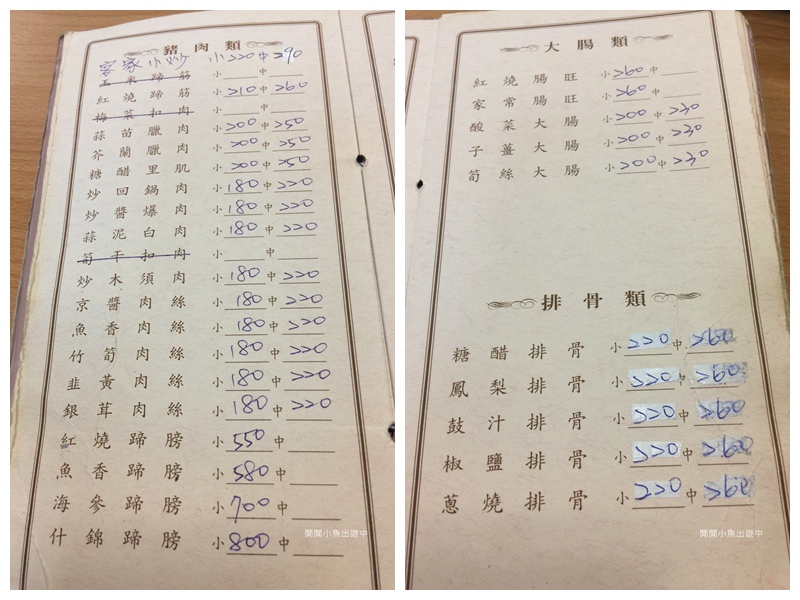 豬肉類
客家小炒 小220中290
玉米蹄筋 小 中
紅燒蹄筋 小210中260
梅菜扣肉 小 中
蒜苗臘肉 小200中250
芥蘭臘肉 小200中250
糖醋里肌 小200中250
炒回鍋肉 小180中220
炒醬爆肉 小180中220
蒜泥白肉 小180中220
筍干扣肉 小 中
炒木須肉 小180中220
京醬肉絲 小180中220
魚香肉絲 小180中220
竹筍肉絲 小180中220
韭黃肉絲 小180中220
銀茸肉絲 小180中220
紅燒蹄膀 小550中
魚香蹄膀 小580中
海參蹄膀 小700中
什錦蹄膀 小800中
閒閒小魚出遊中
大腸類
紅燒腸旺 小260中
家常腸旺 小260中
酸菜大腸 小200中230
子薑大腸 小200中230
筍絲大腸 小200中230
排骨類
糖醋排骨 小220中260
鳳梨排骨 小220中260
鼓汁排骨 小220中260
椒鹽排骨 小220中260
蔥燒排骨 小220中260
閒閒小魚出遊中